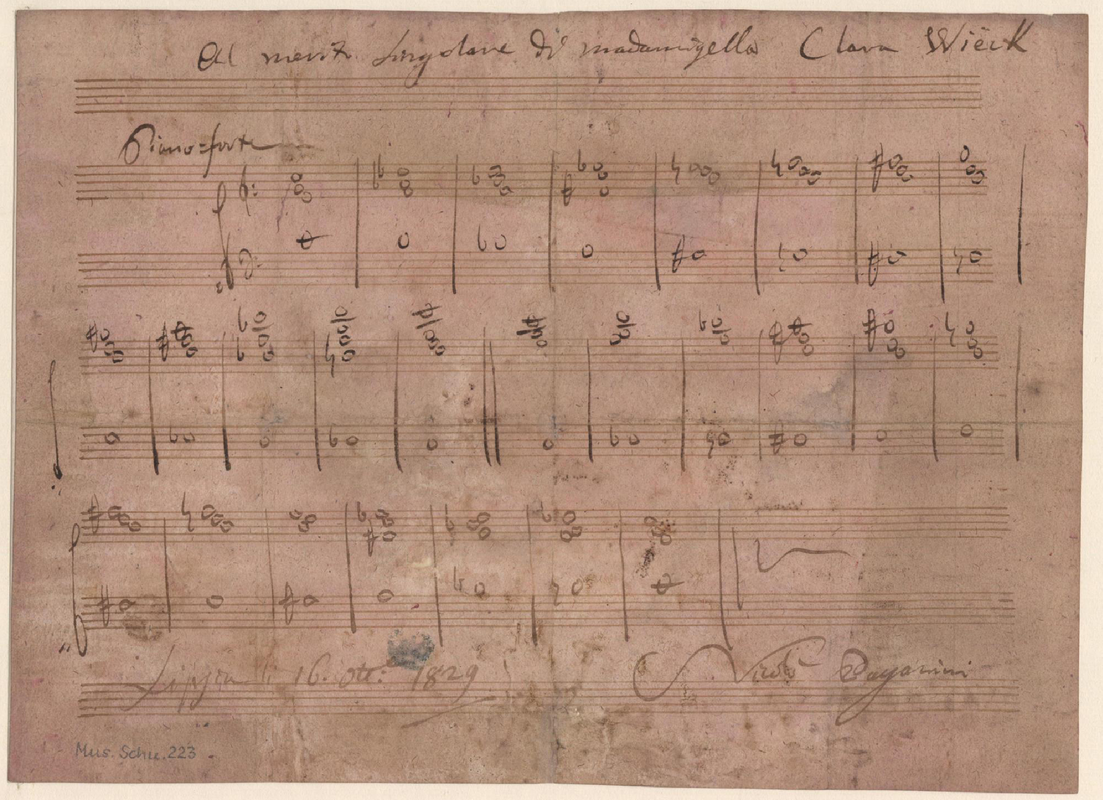 Al merito singolare di madamigella Clara Wiëck
Piano=forte
Lipsia li 16. ott: 1829
Nicolò Paganini
Mus. Schu. 223